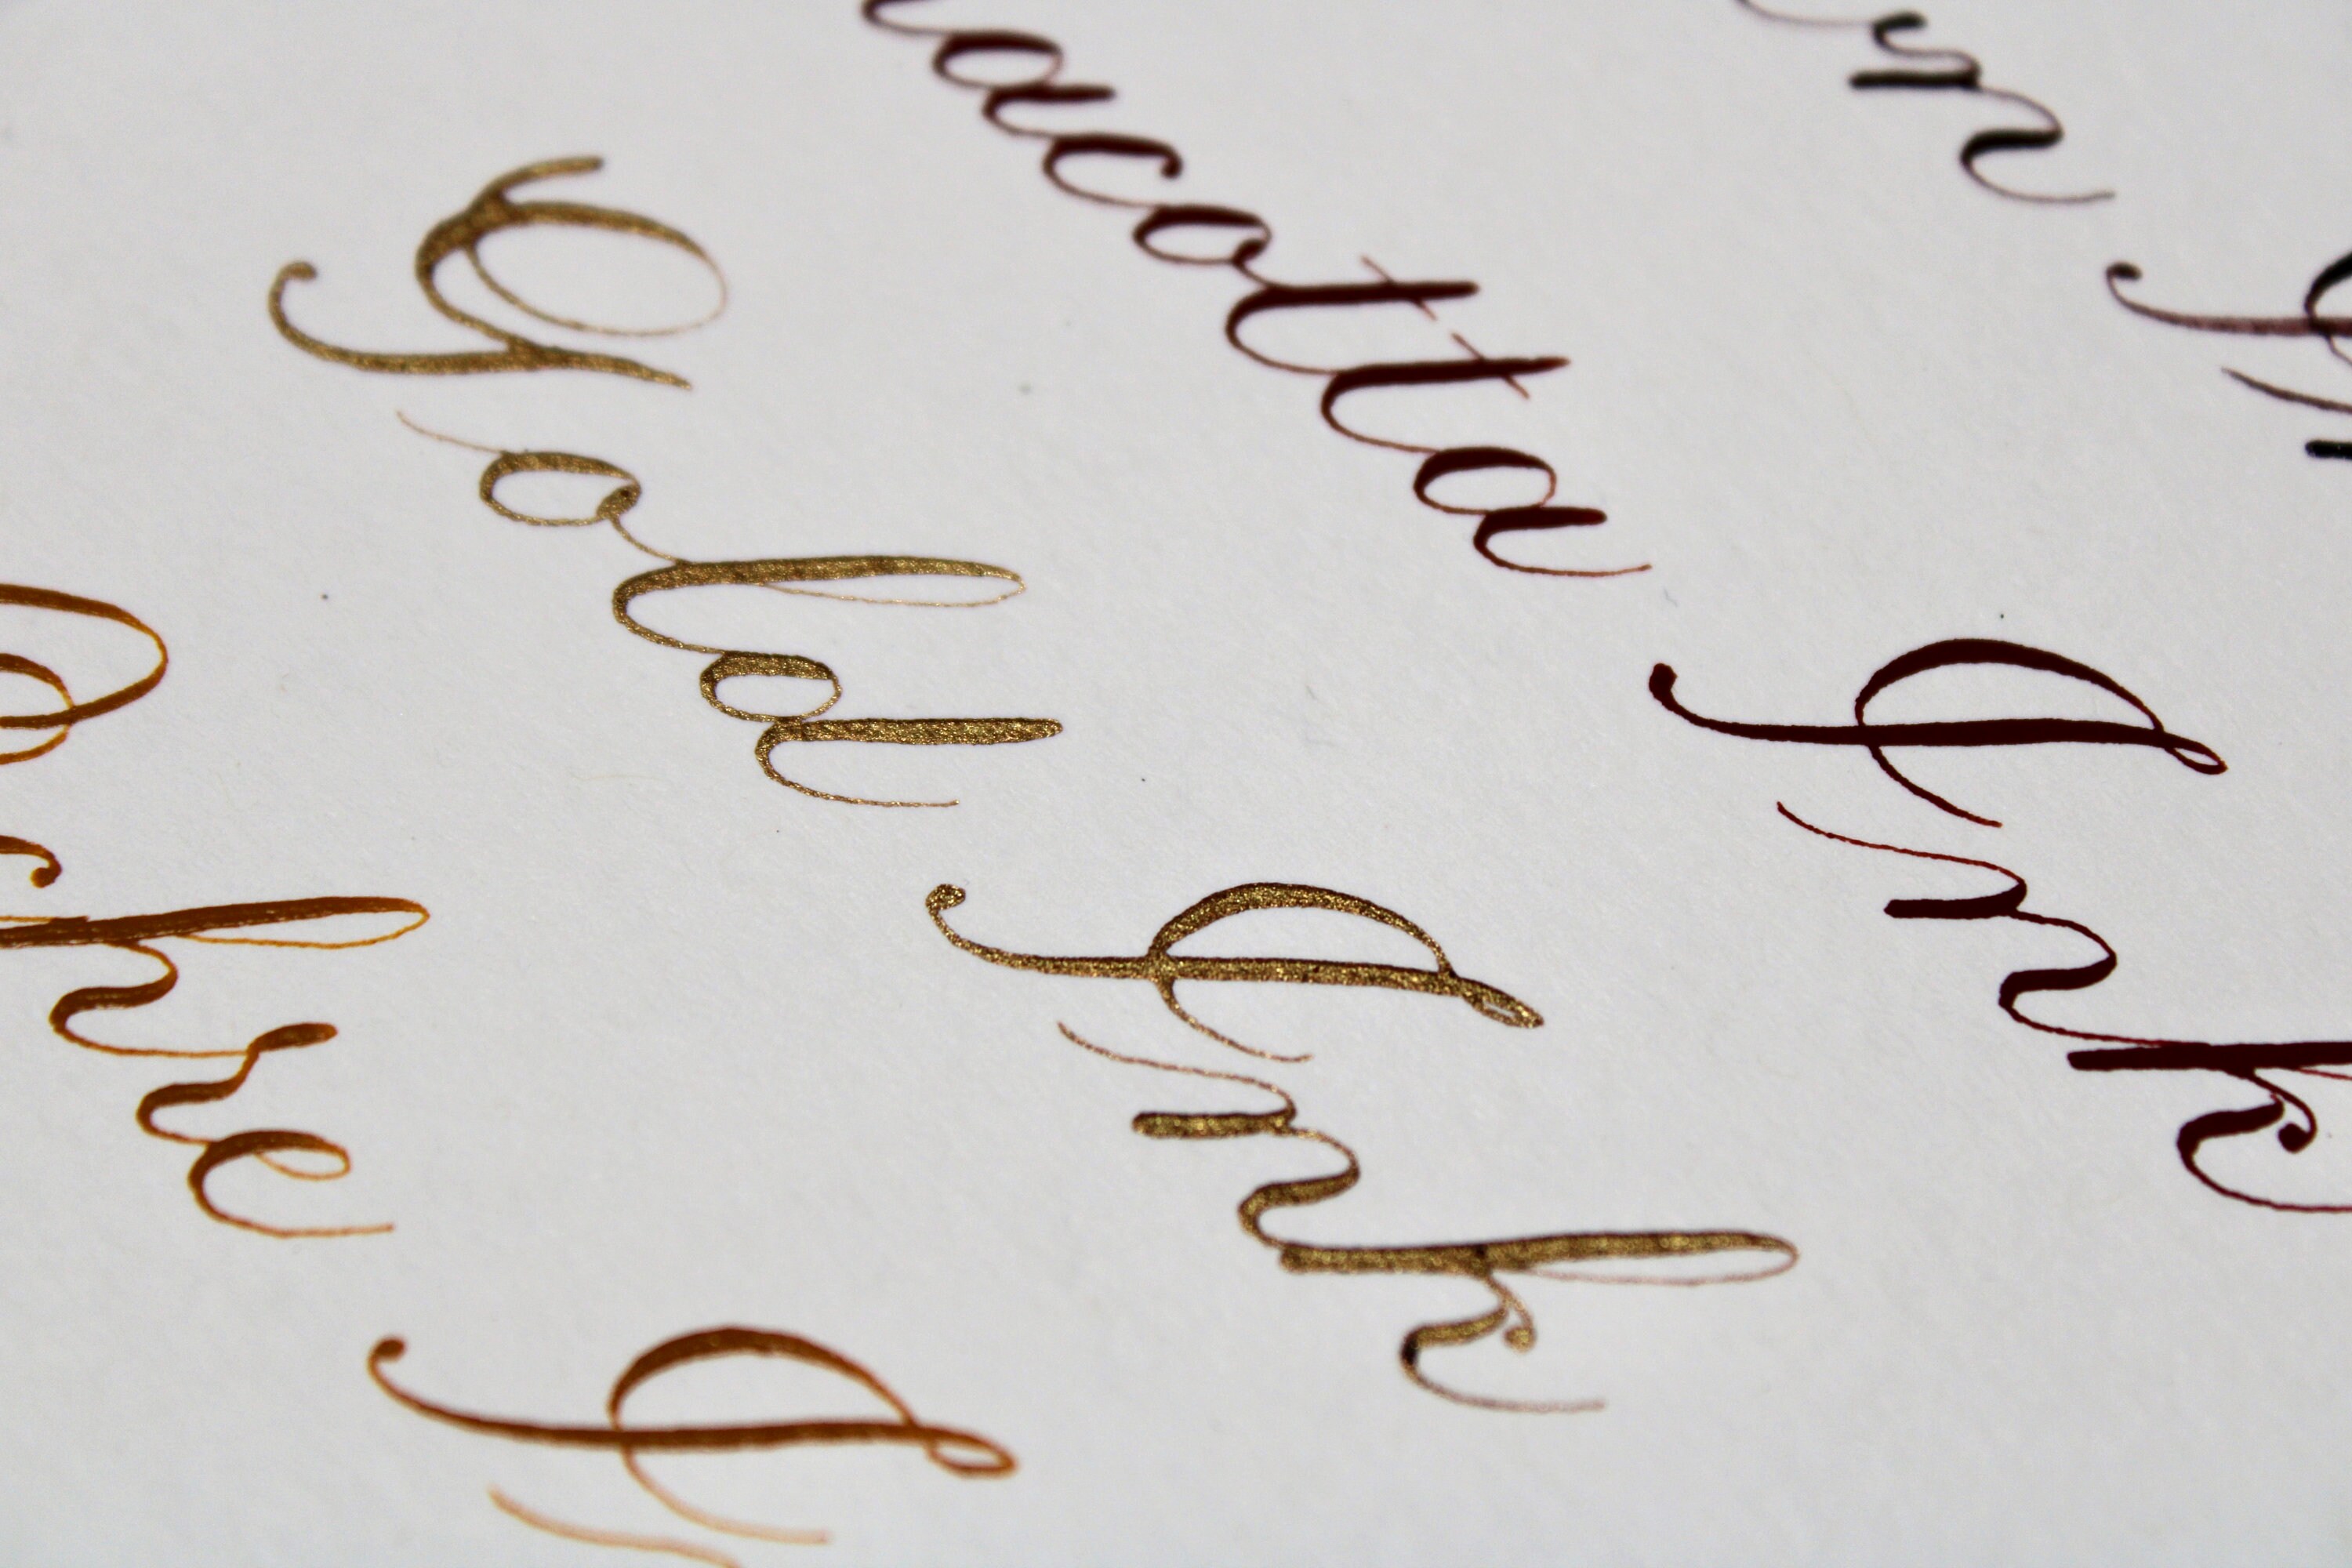 acotta Ink
Gold Ink
Ochre I